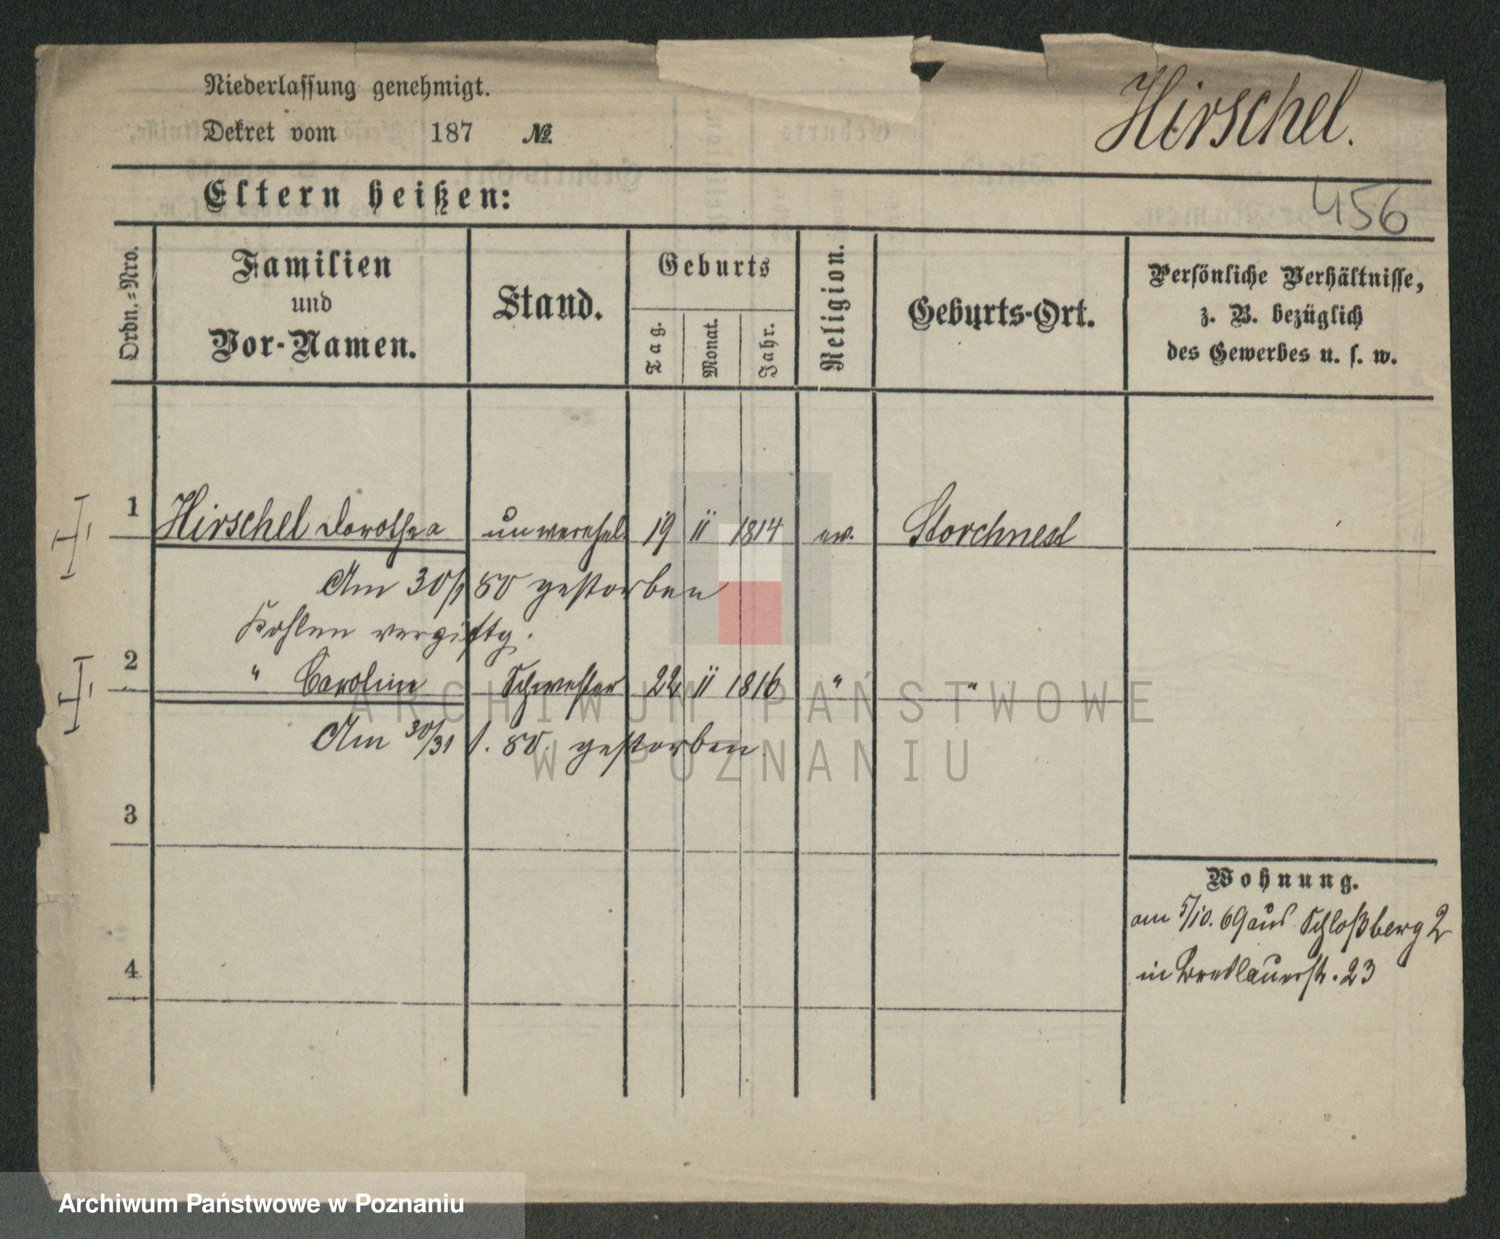 Niederlassung genehmigt.
Dekret vom 187 №
Hirschel.
Eltern heißen:
456
Ordn.-Nro.
Familien
und
Vor-Namen.
Stand.
Geburts
Tag.
Monat.
Jahr.
Religion.
Geburts-Ort.
Persönliche Verhältnisse,
z. B. bezüglich
des Gewerbes u. s. w.
1 Hirschel Dorothea unverehel. 19 11 1814 ev. Storchnest
Am 30/1 80 gestorben
Kohlen vergiftg.
2 " Caroline Schwester 22 11 1816 " "
Am 30/31 1. 80. gestorben
3
Wohnung.
am 5/10. 69 aus Schloßberg 2
4
in Breslauerstr. 23
ARCHIWUM PAŃSTWOWE
W POZNANIU
Archiwum Państwowe w Poznaniu